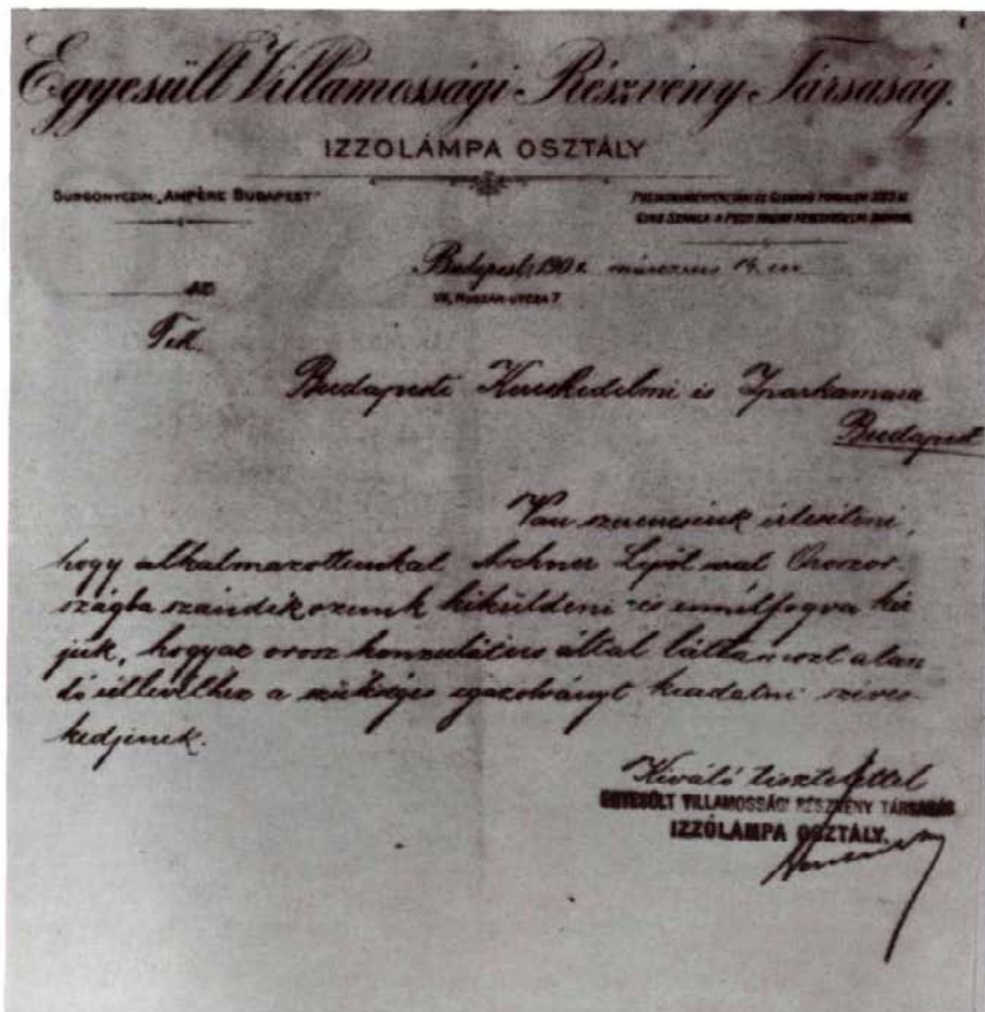 Egyesült Villamossági Részvény Társaság.
IZZOLÁMPA OSZTÁLY
SÜRGÖNYCZIM „AMPÈRE BUDAPEST"
Budapest, 190 márczius 14. én
VII, HUSZÁR-UTCZA 7
Tek.
Budapesti Kereskedelmi és Iparkamara
Budapest
Van szerencsénk értesíteni,
hogy alkalmazottunkat Aschner Lipót urat Oroszor-
szágba szándékozunk kiküldeni és ennélfogva kér-
jük, hogy az orosz konzulátus által láttamozt atan
dó útlevélhez a szükséges igazolványt kiadatni szíves-
kedjenek.
Kiváló tisztelettel
EGYESÜLT VILLAMOSSÁGI RÉSZVÉNY TÁRSASÁG
IZZÓLÁMPA OSZTÁLY.